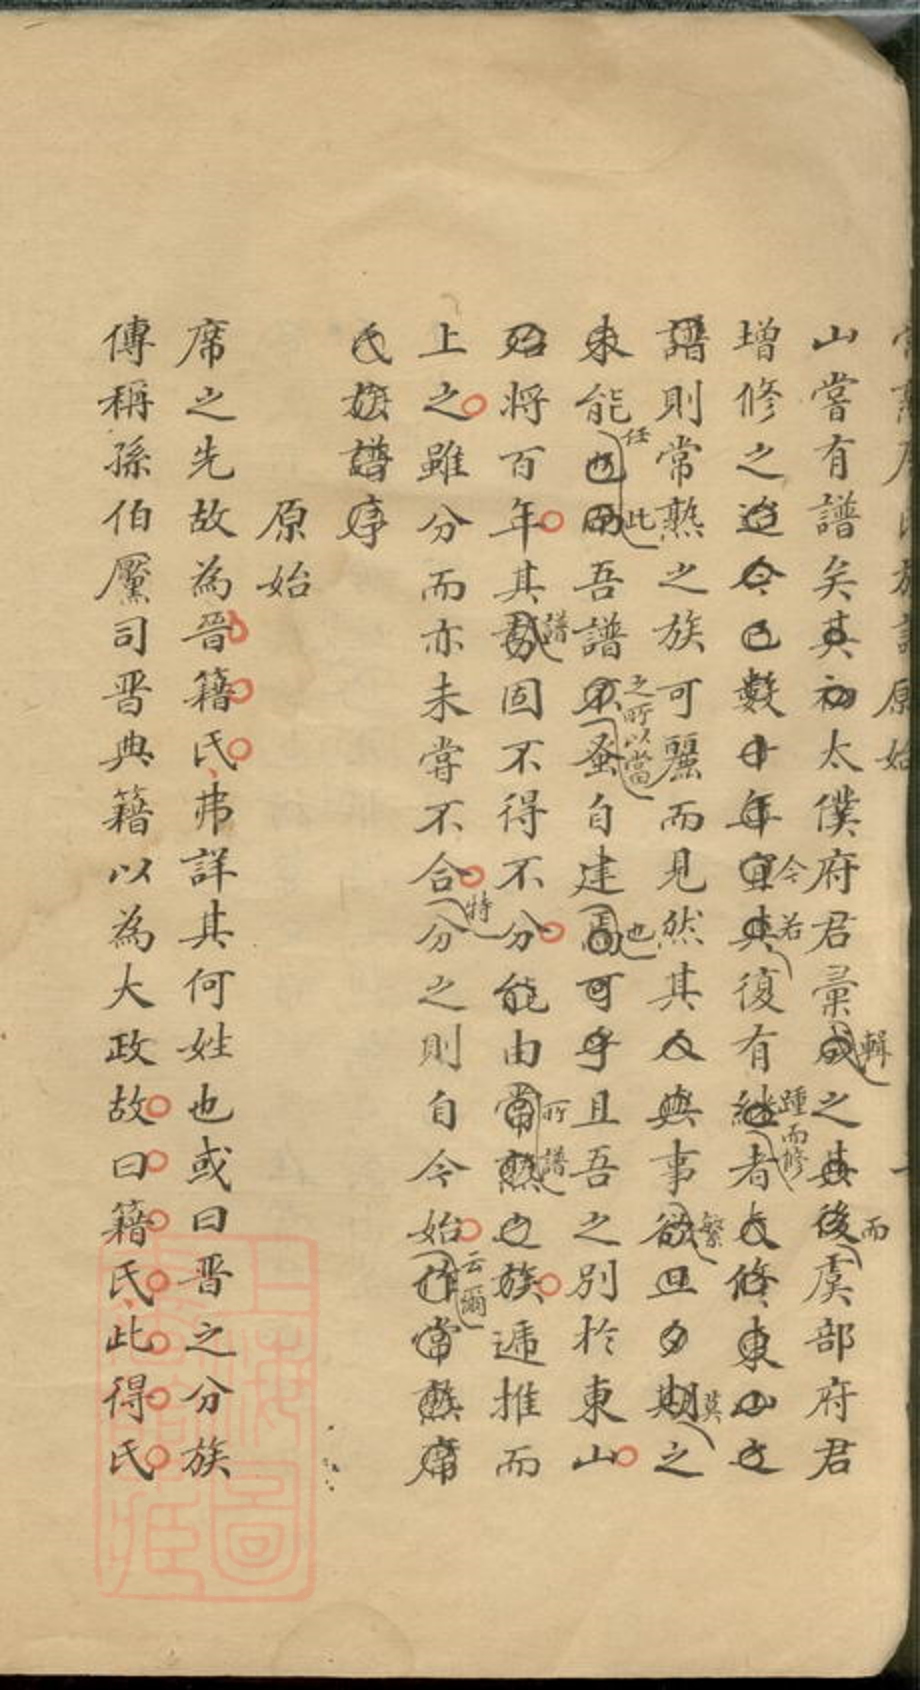 山嘗有譜矣其初太僕府君彙成之其後虞部府君
輯
而
增修之迨今已數十年宜其復有繼者大修東山之
今若
踵而修
譜則常熟之族可麗而見然其人與事欲旦夕期之
繁
莫
未能也而吾譜不蚤自建焉可乎且吾之別於東山
任此
之所以當
也
殆將百年其勢固不得不分能由常熟之族遞推而
譜
所譜
上之雖分而亦未嘗不合分之則自今始作常熟席
特
云爾
氏族譜序
原始
席之先故為晉籍氏弗詳其何姓也或曰晋之分族
傳稱孫伯黶司晋典籍以為大政故曰籍氏此得氏